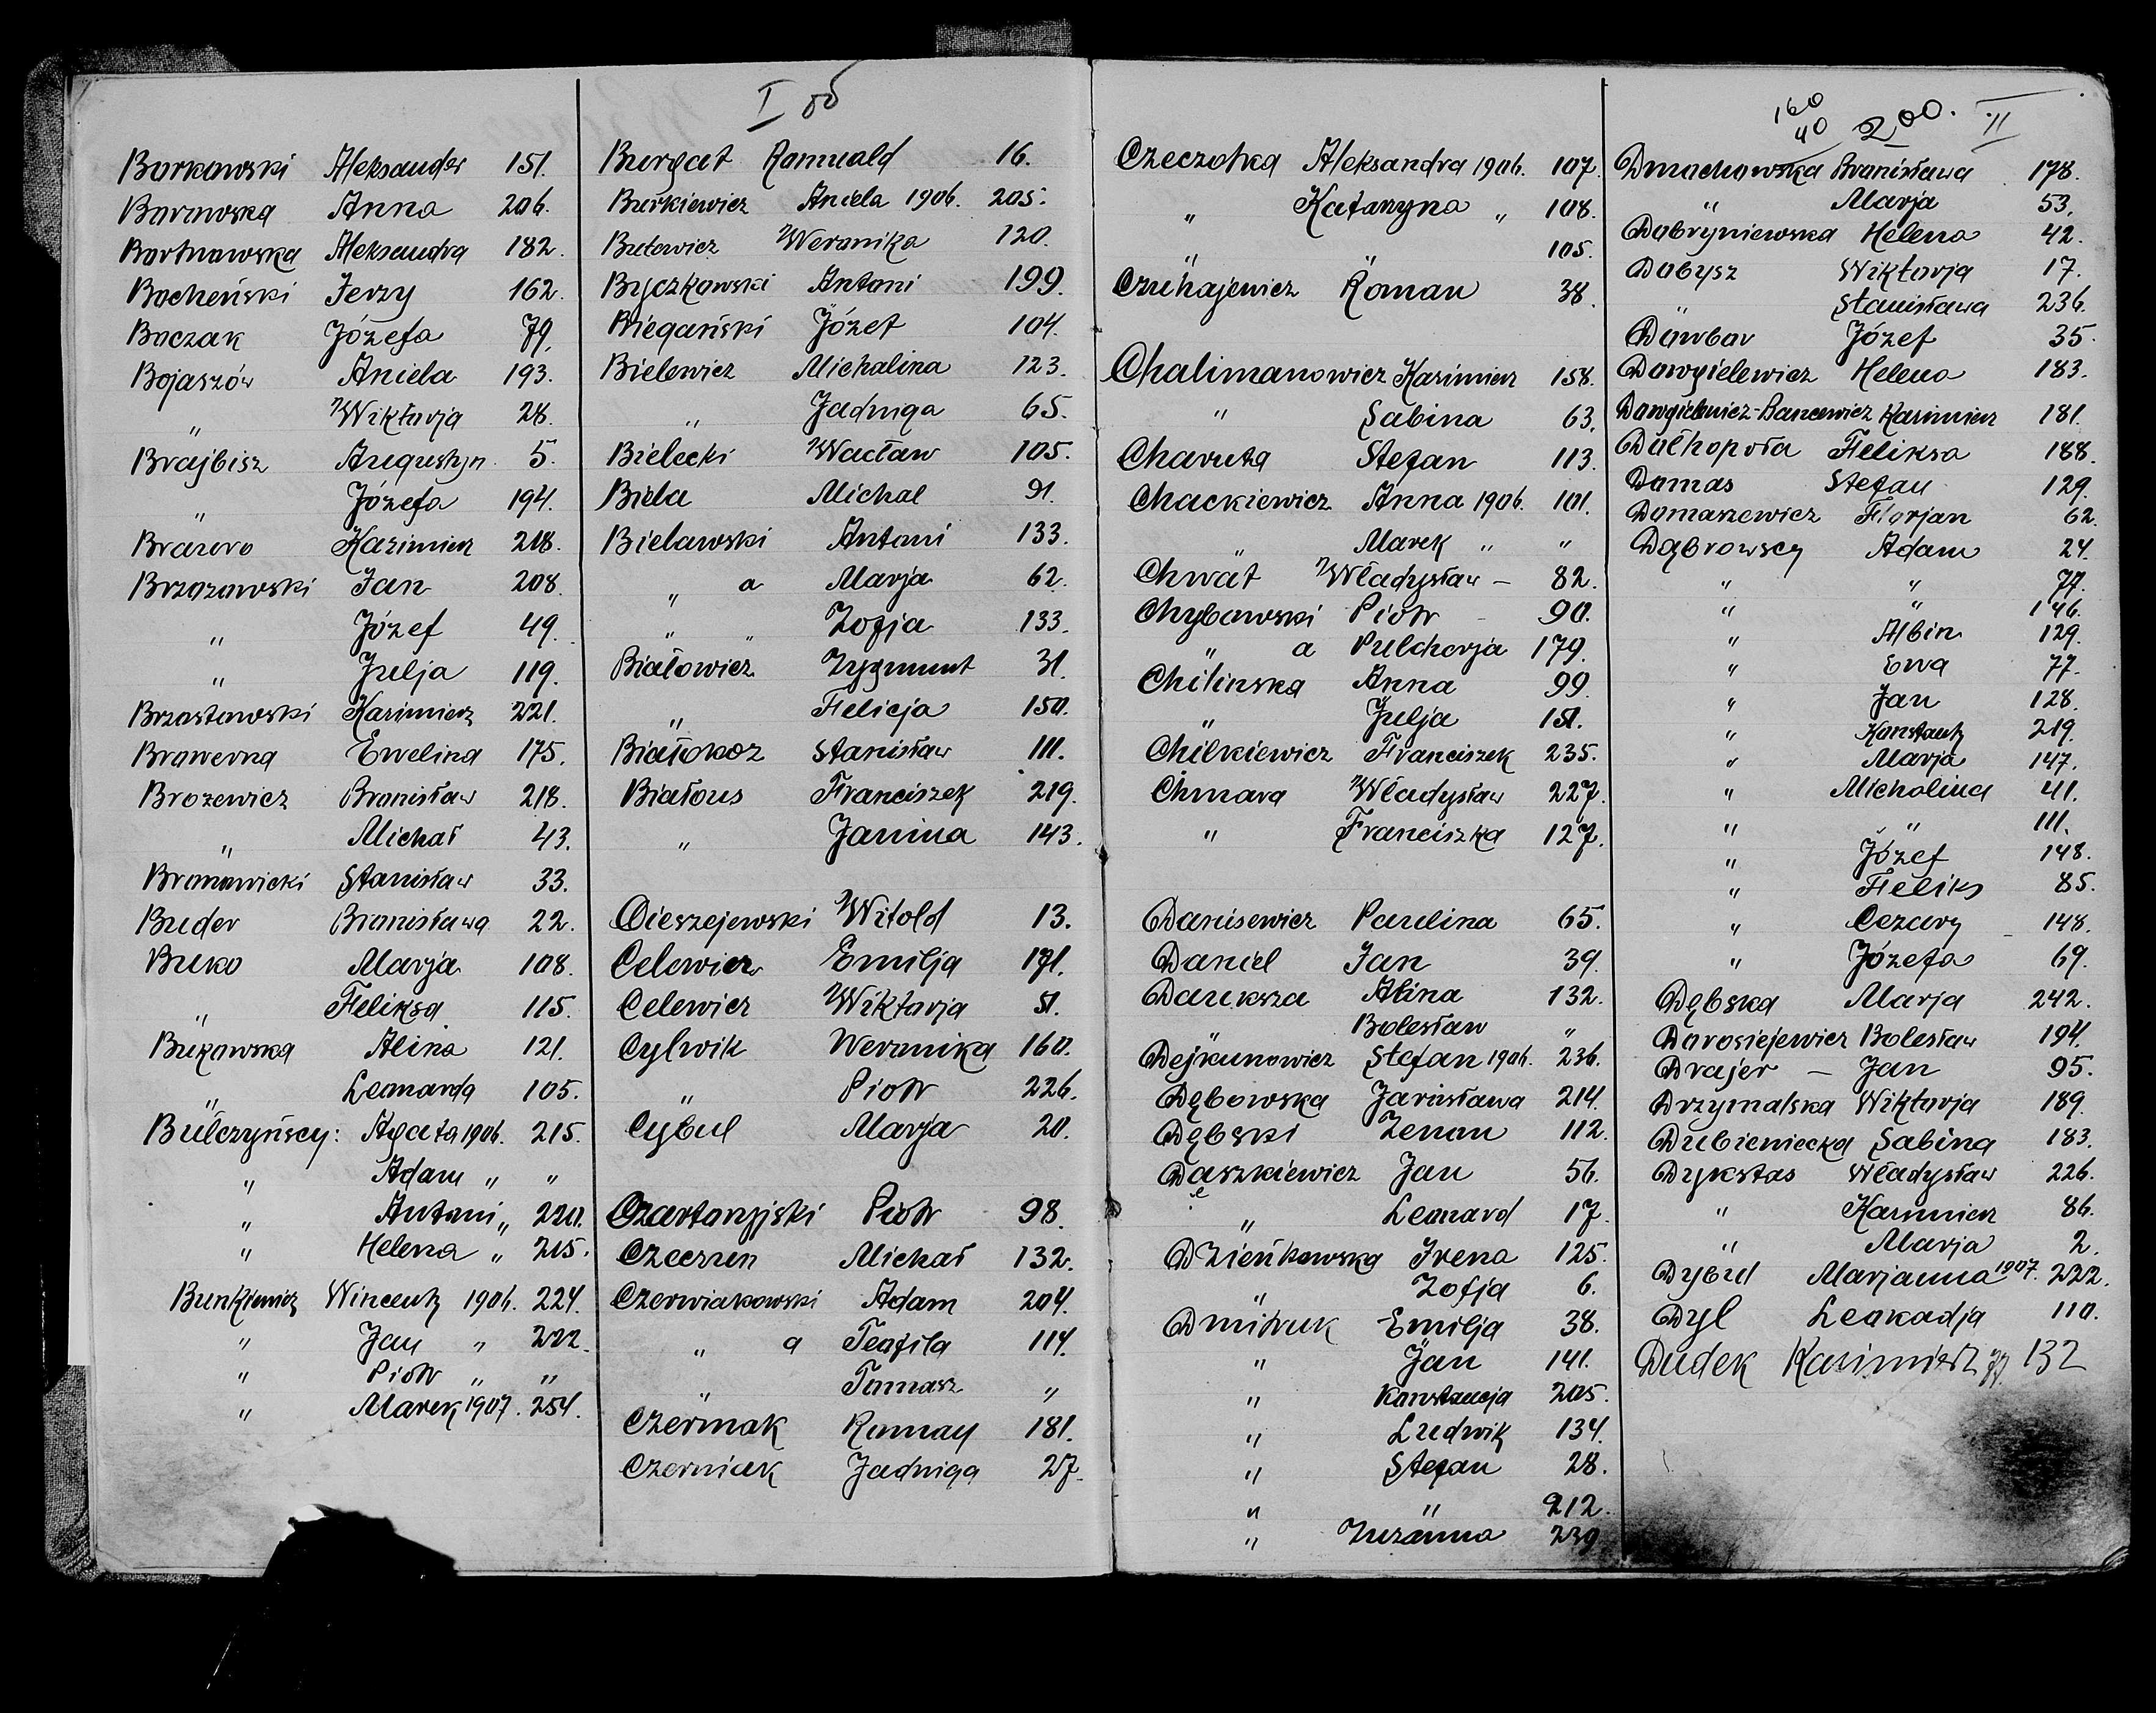 I об
Borkowski Aleksander 151.
Borowska Anna 206.
Bortnowska Aleksandra 182.
Bocheński Jerzy 162.
Boczak Józefa 79.
Bojaszów Aniela 193.
" Wiktorja 28.
Brajbisz Augustyn 5.
" Józefa 194.
Kazimierz 218.
Brzozowski Jan 208.
" Józef 49.
" Julja 119.
Brzostowski Kazimierz 221.
Browerna Ewelina 175.
Brozewicz Bronisław 218.
" Michał 43.
Bronowicki Stanisław 33.
Buder Bronisława 22.
Buko Marja 108.
" Feliksa 115.
Bukowska Alina 121.
" Leonarda 105.
Bulczyńscy: Agata 1906. 215.
" Adam " "
" Antoni " 220.
" Helena " 215.
Bunkiewicz Wincenty 1906. 224.
" Jan " 222.
" Piotr " "
" Marek 1907. 254.
Burgat Romuald 16.
Burkiewicz Aniela 1906. 205.
Butowicz Weronika 120.
Byczkowski Antoni 199.
Biegański Józef 104.
Bielewicz Michalina 123.
" Jadwiga 65.
Bielecki Wacław 105.
Biela Michał 91.
Bielawski Antoni 133.
" a Marja 62.
" " Zofja 133.
Białowicz Zygmunt 31.
" Felicja 150.
Białokoz Stanisław 111.
Białous Franciszek 219.
" Janina 143.
Cieszejewski Witold 13.
Celewicz Emilja 171.
Celewicz Wiktorja 51.
Cylwik Weronika 160.
" Piotr 226.
Cybul Marja 20.
Czartoryjski Piotr 98.
Czeczun Michał 132.
Czerwiakowski Adam 204.
" a Teofila 114.
" Tomasz "
Czermak Roman 181.
Czerniak Jadwiga 27.
Czeczotka Aleksandra 1906. 107.
" Katarzyna " 108.
" " 105.
Czuhajewicz Roman 38.
Chalimanowicz Kazimierz 158.
" Sabina 63.
Charuta Stefan 113.
Chackiewicz Anna 1906. 101.
" Marek " "
Chwat Władysław - 82.
Chybowski Piotr - 90.
" a Pulcherja 179.
Chilinska Anna 99.
" Julja 151.
Chilkiewicz Franciszek 235.
Chmara Władysław 227.
" Franciszka 127.
Danisewicz Paulina 65.
Daniel Jan 39.
Dauksza Alina 132.
" Bolesław "
Dejkunowicz Stefan 1906. 236.
Dębowska Jarosława 214.
Dębski Zenon 112.
Daszkiewicz Jan 56.
" Leonard 17.
Dzieńkowska Irena 125.
" Zofja 6.
Dmitruk Emilja 38.
" Jan 141.
" Konstancja 205.
" Ludwik 134.
" Stefan 28.
" " 212.
" Zuzanna 239
160
40
200. II
Dmochowska Bronisława 178.
" Marja 53.
Dobryniewska Helena 42.
Dobysz Wiktorja 17.
" Stanisława 236.
Dowbor Józef 35.
Dowgielewicz Helena 183.
Dowgielewicz-Bancewicz Kazimierz 181.
Dołhopoła Feliksa 188.
Domas Stefan 129.
Domaszewicz Florjan 62.
Dąbrowscy Adam 24.
" " 77.
" " 146.
" Albin 129.
" Ewa 77.
" Jan 128.
" Konstanty 219.
" Marja 147.
" Michalina 41.
" " 111.
" Józef 148.
" Feliks 85.
" Cezary - 148.
" Józefa 69.
Dębska Marja 242.
Dorosiejewicz Bolesław 194.
Drajer - Jan 95.
Drzymalska Wiktorja 189.
Dubieniecka Sabina 183.
Dykstas Władysław 226.
" Kazimierz 86.
" Marja 2.
Dybul Marjanna 1907. 222.
Dyl Leokadja 110.
Dudek Kazimierz 132